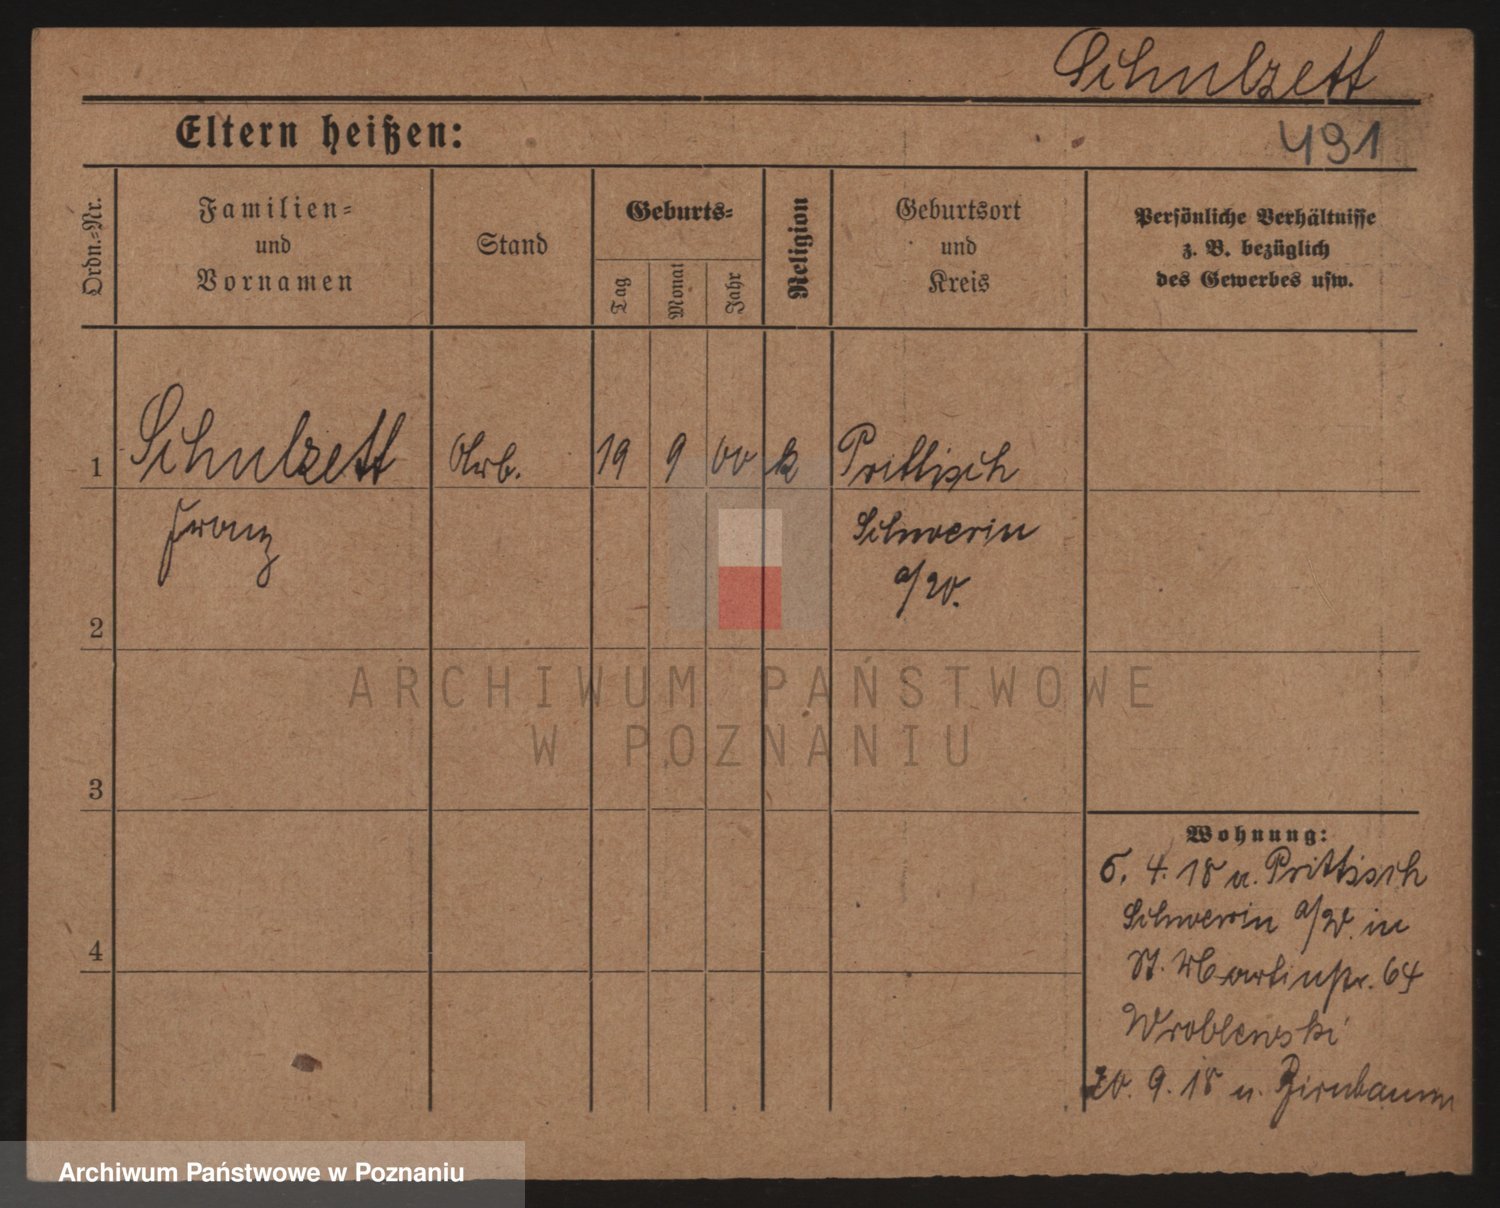 Schulzett
Eltern heißen:
491
Ordn.-Nr.
Familien-
und
Vornamen
Stand
Geburts-
Tag
Monat
Jahr
Religion
Geburtsort
und
Kreis
Persönliche Verhältnisse
z. B. bezüglich
des Gewerbes usw.
1
Schulzett
Arb.
19
9
00
k
Prittisch
Franz
Schwerin
a/W.
2
ARCHIWUM PAŃSTWOWE
W POZNANIU
3
Wohnung:
5. 4. 18 v. Prittisch
Schwerin a/W. in
St. Martinstr. 64
Wroblewski
4
20. 9. 18 n. Birnbaum
Archiwum Państwowe w Poznaniu